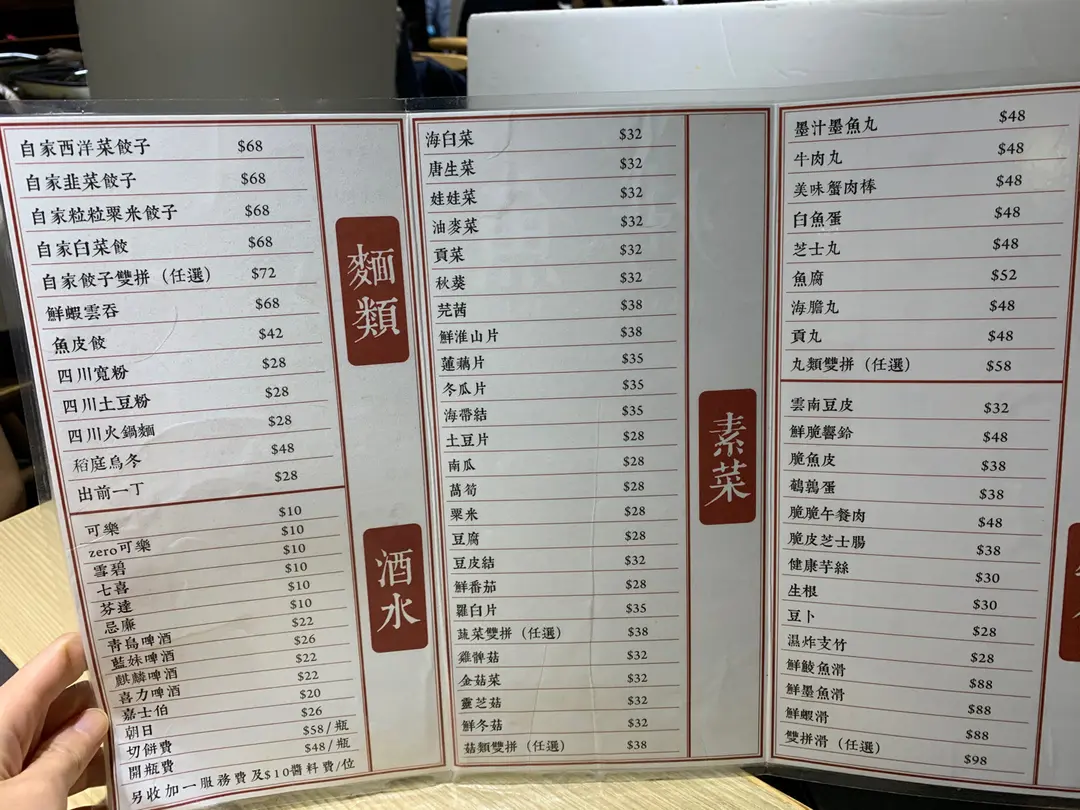 自家西洋菜餃子 $68
自家韭菜餃子 $68
自家粒粒粟米餃子 $68
自家白菜餃 $68
自家餃子雙拼（任選） $72
鮮蝦雲吞 $68
魚皮餃 $42
四川寬粉 $28
四川土豆粉 $28
四川火鍋麵 $28
稻庭烏冬 $48
出前一丁 $28
麵類
可樂 $10
zero可樂 $10
雪碧 $10
七喜 $10
芬達 $10
忌廉 $10
青島啤酒 $22
藍妹啤酒 $26
麒麟啤酒 $22
喜力啤酒 $22
嘉士伯 $20
朝日 $26
切餅費 $58/瓶
開瓶費 $48/瓶
另收加一服務費及$10醬料費/位
酒水
海白菜 $32
唐生菜 $32
娃娃菜 $32
油麥菜 $32
貢菜 $32
秋葵 $32
芫茜 $38
鮮淮山片 $38
蓮藕片 $35
冬瓜片 $35
海帶結 $35
土豆片 $28
南瓜 $28
萵筍 $28
粟米 $28
豆腐 $28
豆皮結 $32
鮮番茄 $28
羅白片 $35
蔬菜雙拼（任選） $38
雞髀菇 $32
金菇菜 $32
靈芝菇 $32
鮮冬菇 $32
菇類雙拼（任選） $38
素菜
墨汁墨魚丸 $48
牛肉丸 $48
美味蟹肉棒 $48
白魚蛋 $48
芝士丸 $48
魚腐 $52
海膽丸 $48
貢丸 $48
丸類雙拼（任選） $58
雲南豆皮 $32
鮮脆響鈴 $48
脆魚皮 $38
鵪鶉蛋 $38
脆脆午餐肉 $48
脆皮芝士腸 $38
健康芋絲 $30
生根 $30
豆卜 $28
濕炸支竹 $28
鮮鯪魚滑 $88
鮮墨魚滑 $88
鮮蝦滑 $88
雙拼滑（任選） $98